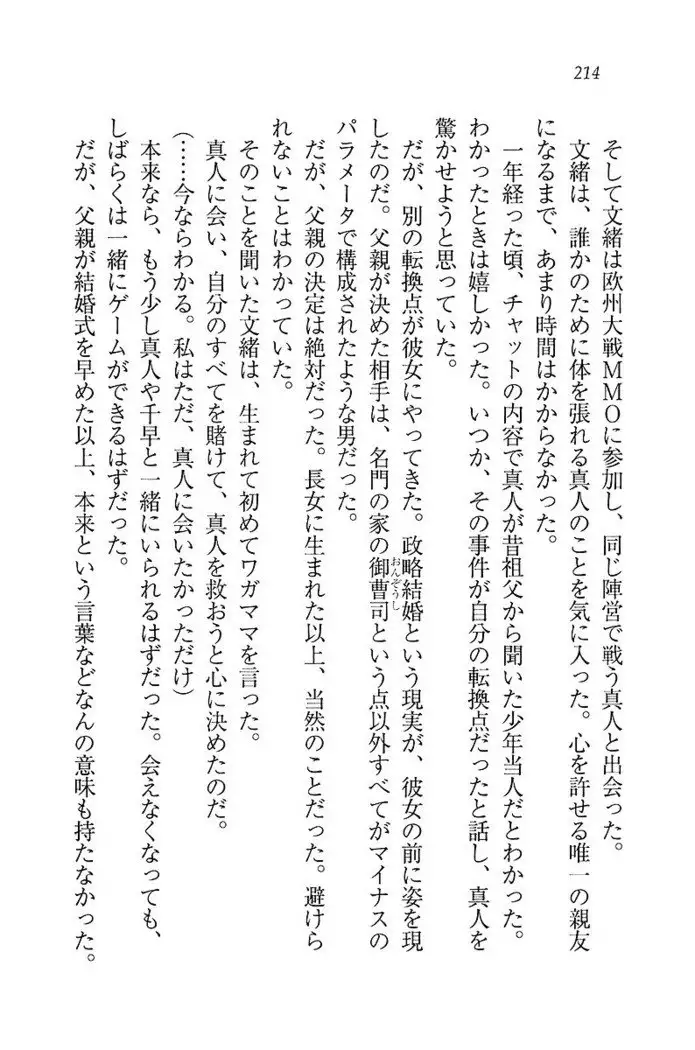 214
そして文緒は欧州大戦MMOに参加し、同じ陣営で戦う真人と出会った。
文緒は、誰かのために体を張れる真人のことを気に入った。心を許せる唯一の親友
になるまで、あまり時間はかからなかった。
一年経った頃、チャットの内容で真人が昔祖父から聞いた少年当人だとわかった。
わかったときは嬉しかった。いつか、その事件が自分の転換点だったと話し、真人を
驚かせようと思っていた。
だが、別の転換点が彼女にやってきた。政略結婚という現実が、彼女の前に姿を現
したのだ。父親が決めた相手は、名門の家の御曹司おんぞうしという点以外すべてがマイナスの
パラメータで構成されたような男だった。
だが、父親の決定は絶対だった。長女に生まれた以上、当然のことだった。避けら
れないことはわかっていた。
そのことを聞いた文緒は、生まれて初めてワガママを言った。
真人に会い、自分のすべてを賭けて、真人を救おうと心に決めたのだ。
(……今ならわかる。私はただ、真人に会いたかっただけ)
本来なら、もう少し真人や千早と一緒にいられるはずだった。会えなくなっても、
しばらくは一緒にゲームができるはずだった。
だが、父親が結婚式を早めた以上、本来という言葉などなんの意味も持たなかった。